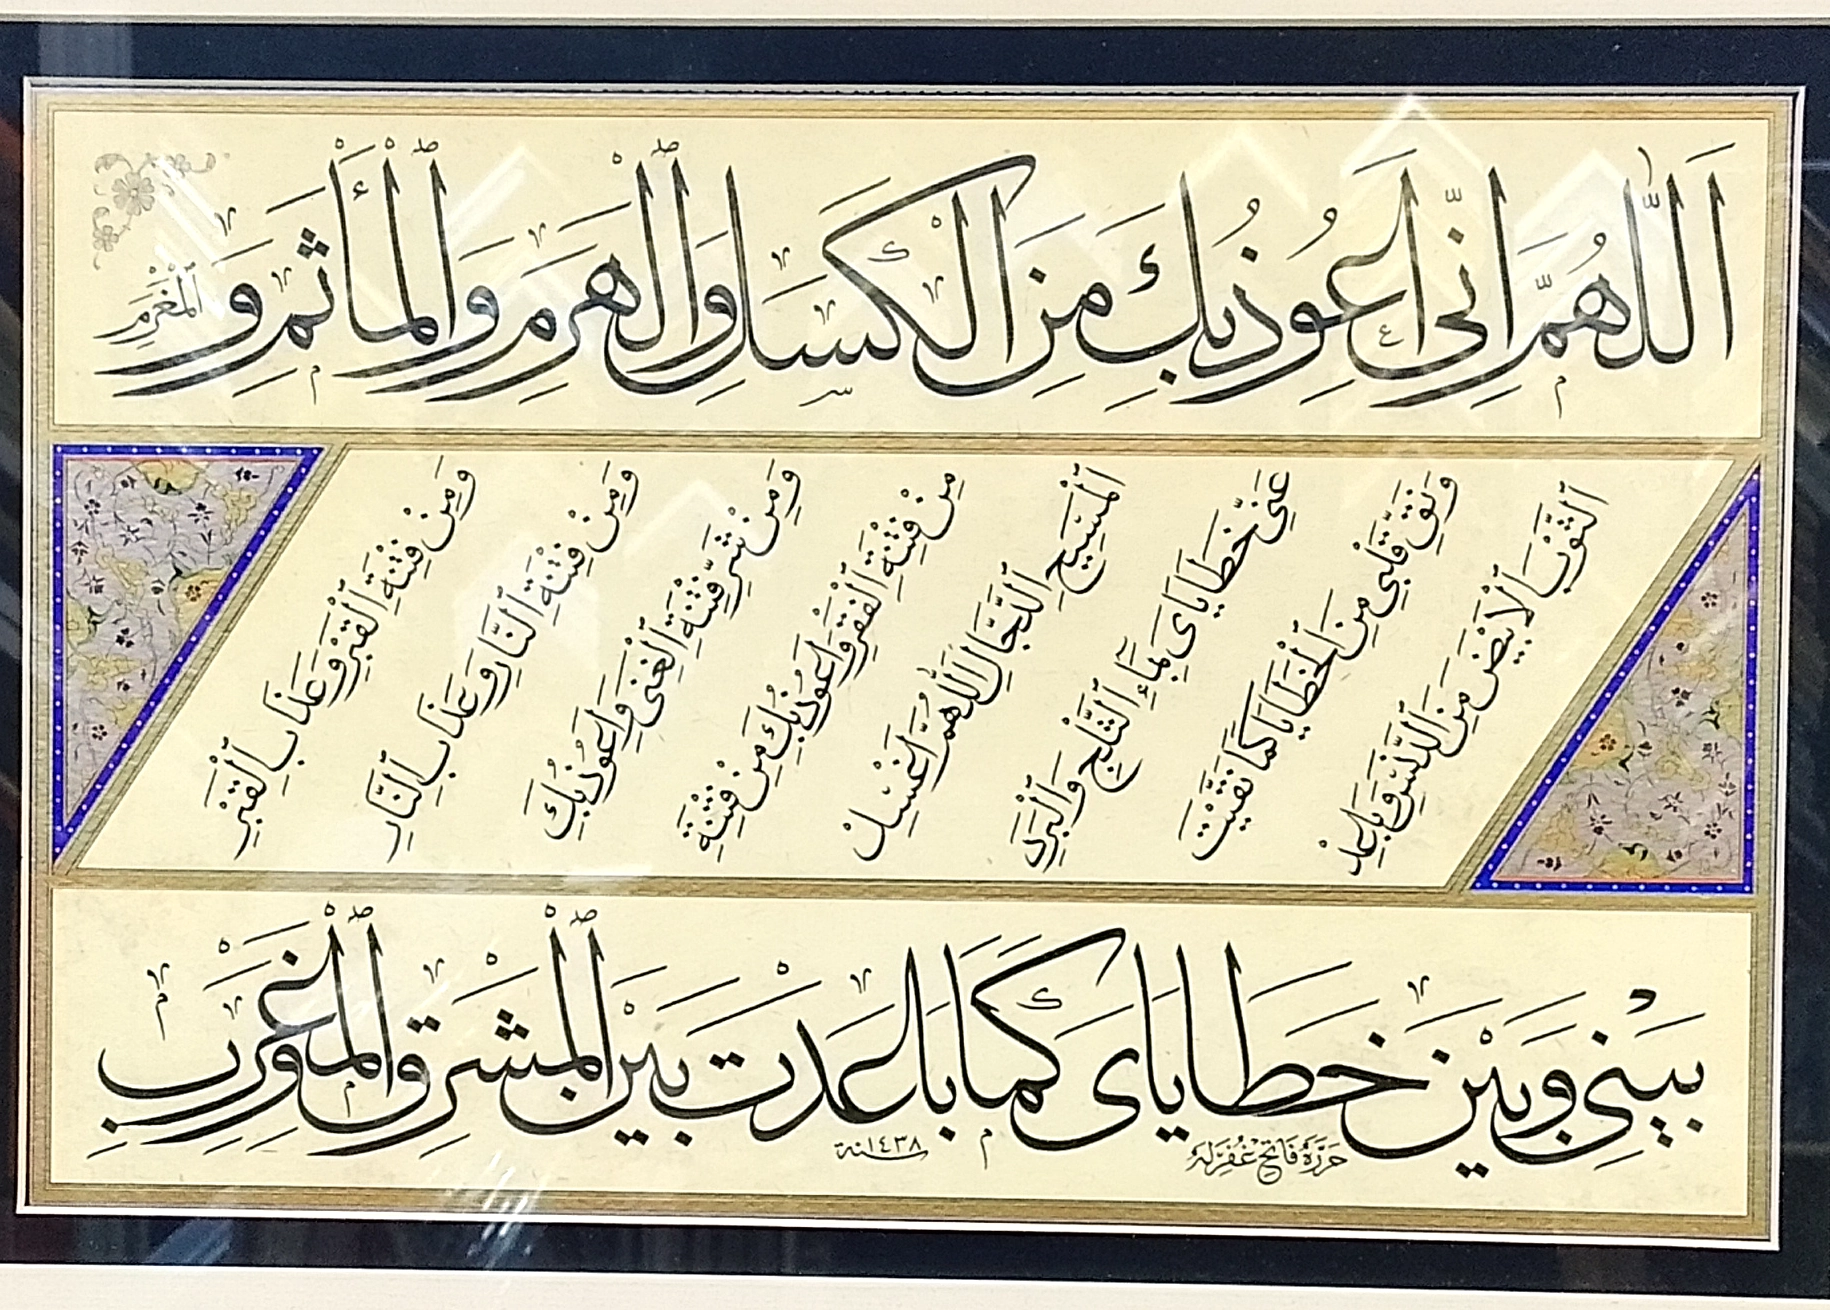 اَللّٰهُمَّ اِنّٖى اَعُوذُ بِكَ مِنَ الْكَسَلِ وَالْهَرَمِ وَالْمَأْثَمِ وَ الْمَغْرَمِ
وَمِنْ فِتْنَةِ الْقَبْرِ وَعَذَابِ الْقَبْرِ
وَمِنْ فِتْنَةِ النَّارِ وَعَذَابِ النَّارِ
وَمِنْ شَرِّ فِتْنَةِ الْغِنٰى وَاَعُوذُ بِكَ
مِنْ فِتْنَةِ الْفَقْرِ وَاَعُوذُ بِكَ مِنْ فِتْنَةِ
الْمَسٖيحِ الدَّجَّالِ اَللّٰهُمَّ اغْسِلْ
عَنّٖى خَطَايَاىَ بِمَاءِ الثَّلْجِ وَالْبَرَدِ
وَنَقِّ قَلْبٖى مِنَ الْخَطَايَا كَمَا نَقَّيْتَ
الثَّوْبَ الْاَبْيَضَ مِنَ الدَّنَسِ وَبَاعِدْ
بَيْنٖى وَبَيْنَ خَطَايَاىَ كَمَا بَاعَدْتَ بَيْنَ الْمَشْرِقِ وَالْمَغْرِبِ
حَرَّرَهُ فَاتِحْ غُفِرَ لَهُ
سنة ١٤٣٨